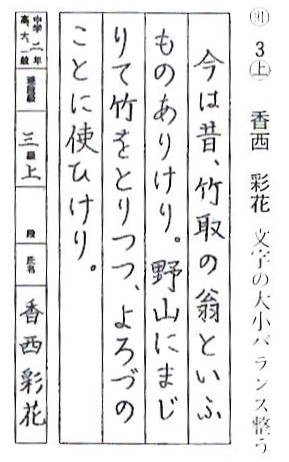 3上 香西 彩花 文字の大小バランス整う
今は昔、竹取の翁といふ
ものありけり。野山にまじ
りて竹をとりつつ、よろづの
ことに使ひけり。
中学 二年
高、大、一般
三級上
段
氏名
香西彩花